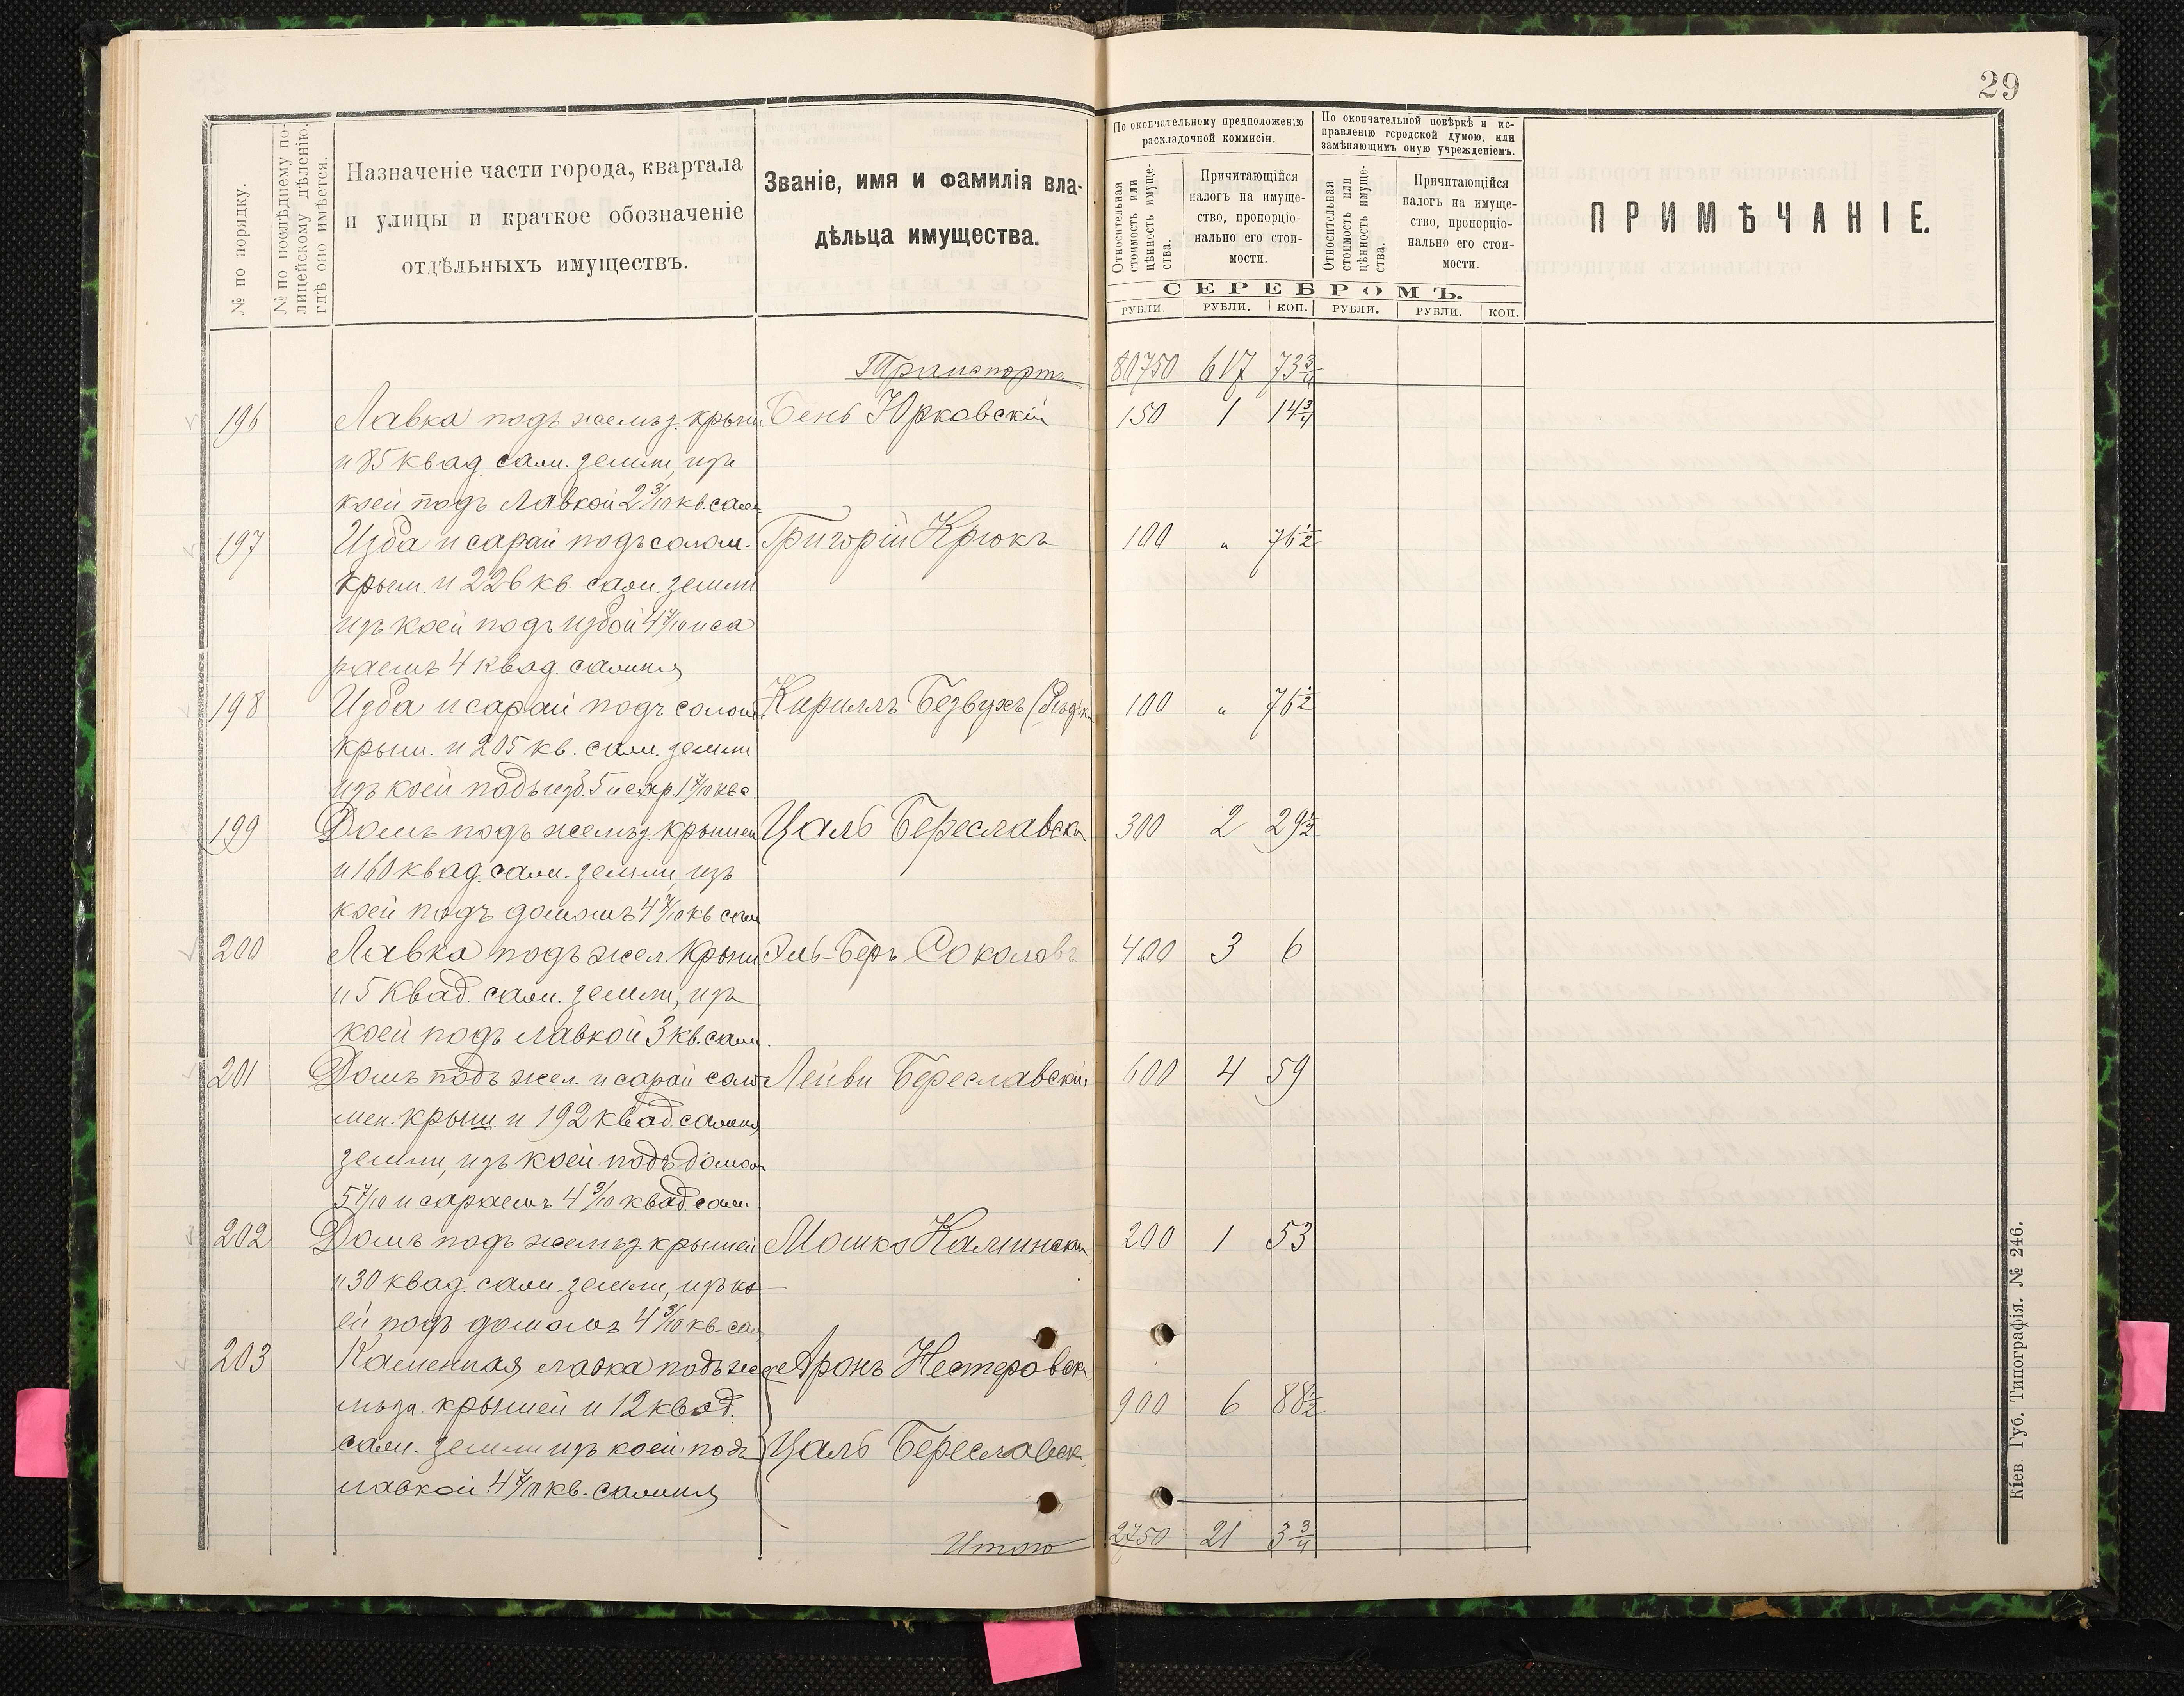 29
№ по порядку.
№ по послѣднему по-
лицейскому дѣленію,
гдѣ оно имѣется.
Назначеніе части города, квартала
и улицы и краткое обозначеніе
отдѣльныхъ имуществъ.
Званіе, имя и фамилія вла-
дѣльца имущества.
По окончательному предположенію
раскладочной коммисіи.
Относительная
стоимость или
цѣнность имуще-
ства.
Причитающійся
налогъ на имуще-
ство, пропорціо-
нально его стои-
мости.
По окончательной повѣркѣ и ис-
правленію городской думою, или
замѣняющимъ оную учрежденіемъ.
Относительная
стоимость или
цѣнность имуще-
ства.
Причитающійся
налогъ на имуще-
ство, пропорціо-
нально его стои-
мости.
СЕРЕБРОМЪ.
РУБЛИ. РУБЛИ. КОП. РУБЛИ. РУБЛИ. КОП.
ПРИМѢЧАНІЕ.
Транспортъ 80750 617 73 3/4
196 Лавка подъ желѣз. крыш. Бень Юрковскій 150 1 14 3/4
и 85 квад. саж. земли, изъ
коей подъ лавкой 2 3/10 кв. саж.
197 Изба и сарай подъ солом. Григорій Крюкъ 100 " 76 1/2
крыш. и 226 кв. саж. земли
изъ коей подъ избой 4 7/10 и са
раемъ 4 квад. сажня
198 Изба и сарай подъ солом. Кириллъ Безвухъ 100 " 76 1/2
крыш. и 205 кв. саж. земли
изъ коей подъ изб. 5 и сар. 1 7/10 кв. с.
199 Домъ подъ желѣз. крышей Цаль Береславск 300 2 29 1/2
и 160 квад. саж. земли, изъ
коей подъ домомъ 4 7/10 кв саж
200 Лавка подъ жел. крыш Эль-Беръ Соколовъ 400 3 6
и 5 квад. саж. земли, изъ
коей подъ лавкой 3 кв. саж.
201 Домъ подъ жел. и сарай соло Лейви Береславскій 600 4 59
мен. крыш. и 192 квад. сажня
земли, изъ коей подъ домом
5 7/10 и сараемъ 4 3/10 квад саж
202 Домъ подъ желѣз. крышей Мошко Калинскій 200 1 53
и 30 квад. саж. земли, изъ ко
ей подъ домомъ 4 3/10 кв. саж
203 Каменная лавка подъ же Аронъ Нестеровск
лѣзн. крышей и 12 квад. 900 6 88 1/2
саж. земли изъ коей подъ Цаль Береславск
лавкой 4 7/10 кв. сажня
Итого 2750 21 3 3/4
Кіев. Губ. Типографія. № 246.